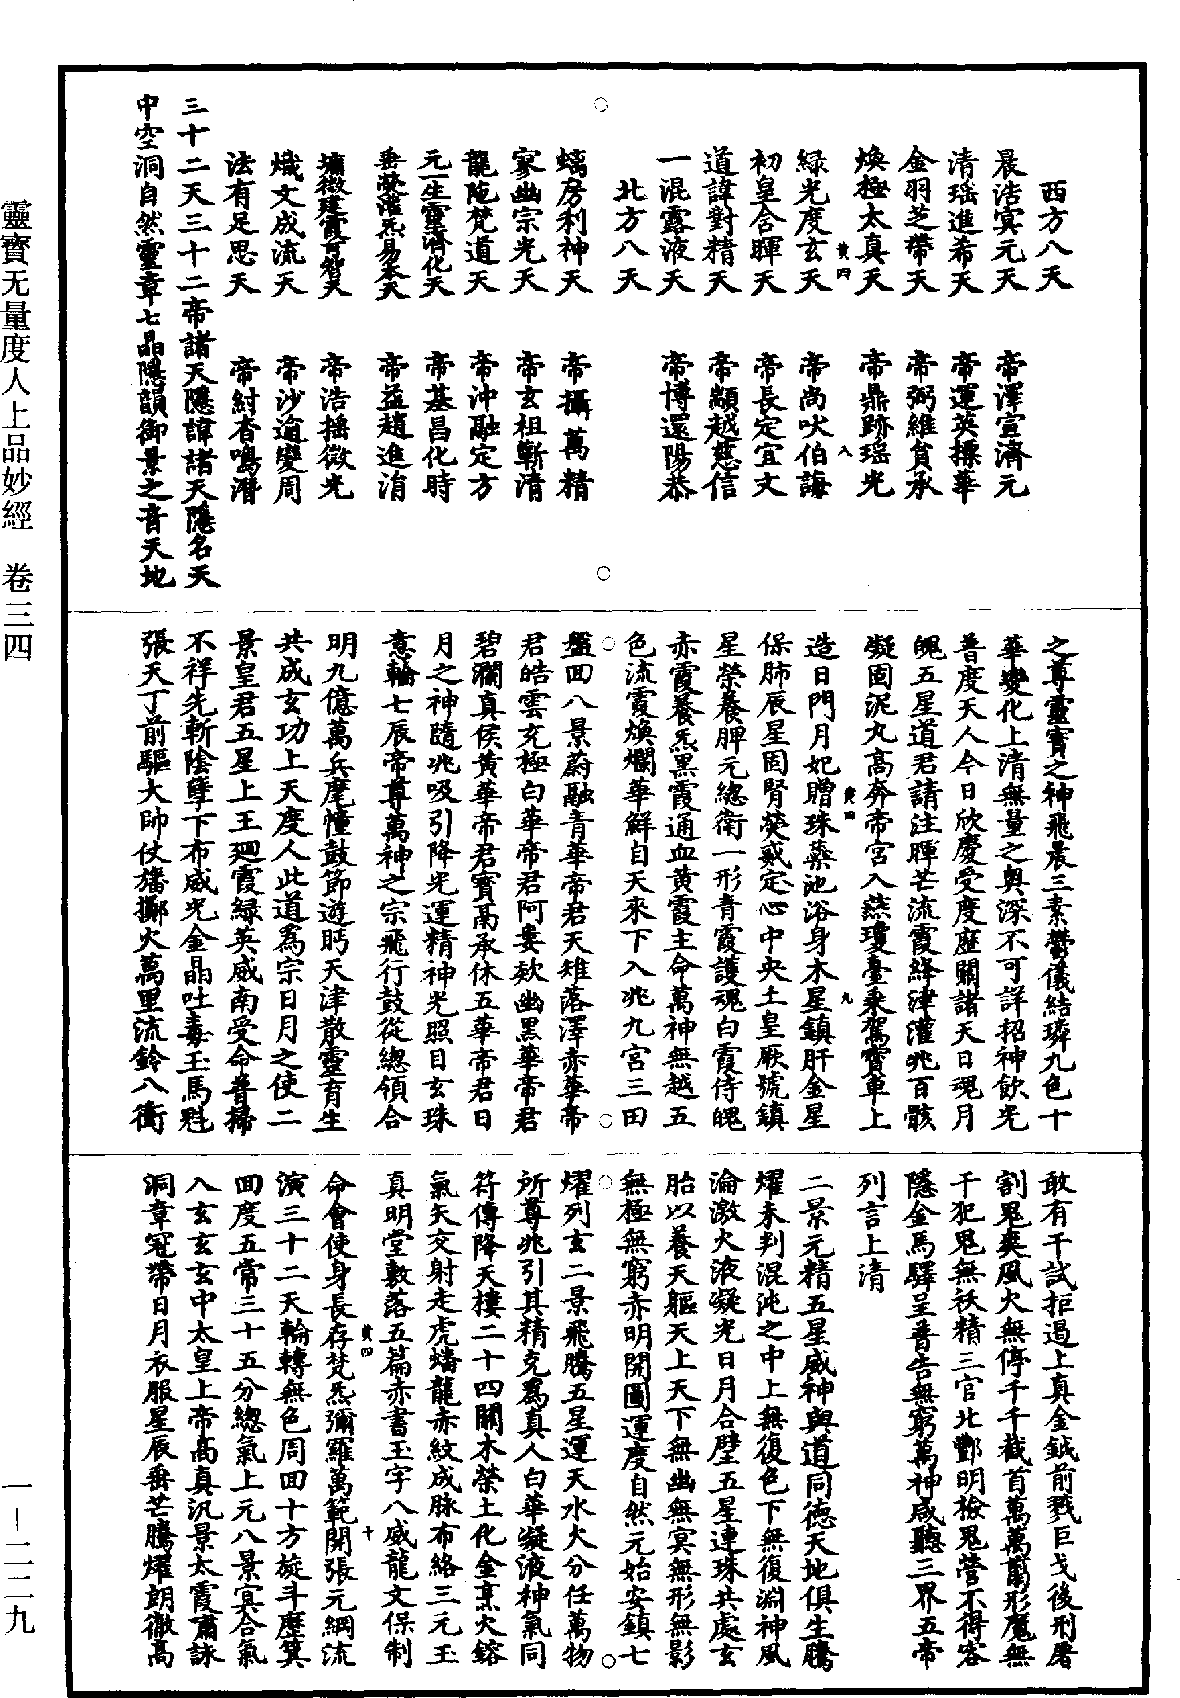 靈寶无量度人上品妙經　卷三四
一—二二九
西方八天
晨浩冥元天　帝澤宣濟元
清瑤進希天　帝運英摽華
金羽芝帶天　帝弼維負承
煥極太真天　帝鼎跡瑤光
黃四　八
綠光度玄天　帝尚吠伯誨
初皇合暉天　帝長定宜文
道諱對精天　帝顓越慈信
一混露液天　帝博還陽恭
北方八天
螭房利神天　帝攝萬精
寥幽宗光天　帝玄祖蕲清
龍陁梵道天　帝沖融定方
元一生靈濟化天　帝基昌化時
垂榮灌炁易奉天　帝益趙進洧
墉微建霞育智天　帝浩搖微光
熾文成流天　帝沙逌變周
法有足思天　帝紂杳鳴潛
三十二天三十二帝諸天隱諱諸天隱名天
中空洞自然靈章七晶隱韻御景之音天地
之尊靈寶之神飛晨三素鬱儀結璘九色十
華變化上清無量之奧深不可詳招神飲光
普度天人今日欣慶受度歷關諸天日魂月
魄五星道君請注暉芒流霞絳津灌兆百骸
凝固泥丸高奔帝宮入蕊瓊臺乘駕寶車上
黃四　九
造日門月妃贈珠蘂池浴身木星鎮肝金星
保肺辰星固腎熒惑定心中央土皇厥號鎮
星榮養脾元總衛一形青霞護魂白霞侍魄
赤霞養炁黑霞通血黃霞主命萬神無越五
色流霞煥爛華鮮自天來下入兆九宮三田
盤回八景蔚融青華帝君天雉落澤赤華帝
君皓雲充極白華帝君阿婁欻幽黑華帝君
碧瀾真侯黃華帝君寶高承休五華帝君日
月之神隨兆吸引降光運精神光照目玄珠
意輪七辰帝尊萬神之宗飛行鼓從總領合
明九億萬兵麾幢鼓節遊眄天津散靈育生
共成玄功上天度人此道爲宗日月之使二
景皇君五星上王廻霞綠英威南受命普掃
不祥先斬陰孽下布威光金晶吐毒玉馬魁
張天丁前驅大帥仗旛擲火萬里流鈴八衝
敢有干試拒遏上真金鉞前戮巨戈後刑屠
割鬼爽風火無停千千截首萬萬剪形魔無
干犯鬼無袄精三官北酆明檢鬼營不得容
隱金馬驛呈普告無窮萬神咸聽三界五帝
列言上清
二景元精五星威神與道同德天地俱生騰
燿未判混沌之中上無復色下無復淵神風
淪激火液凝光日月合壁五星連珠共處玄
胎以養天軀天上天下無幽無冥無形無影
無極無窮赤明開圖運度自然元始安鎮七
燿列玄二景飛騰五星運天水火分任萬物
所尊兆引其精克爲真人白華凝液神氣同
符傳降天樓二十四關木榮土化金烹火鎔
氣矢交射走虎蟠龍赤紋成脉布絡三元玉
真明堂敷落五篇赤書玉字八威龍文保制
黃四　十
命會使身長存梵炁彌羅萬範開張元綱流
演三十二天輪轉無色周回十方旋斗麾箕
回度五常三十五分總氣上元八景冥合氣
八玄玄玄中太皇上帝高真汎景太霞肅詠
洞章冠帶日月衣服星辰垂芒騰燿朗徹高